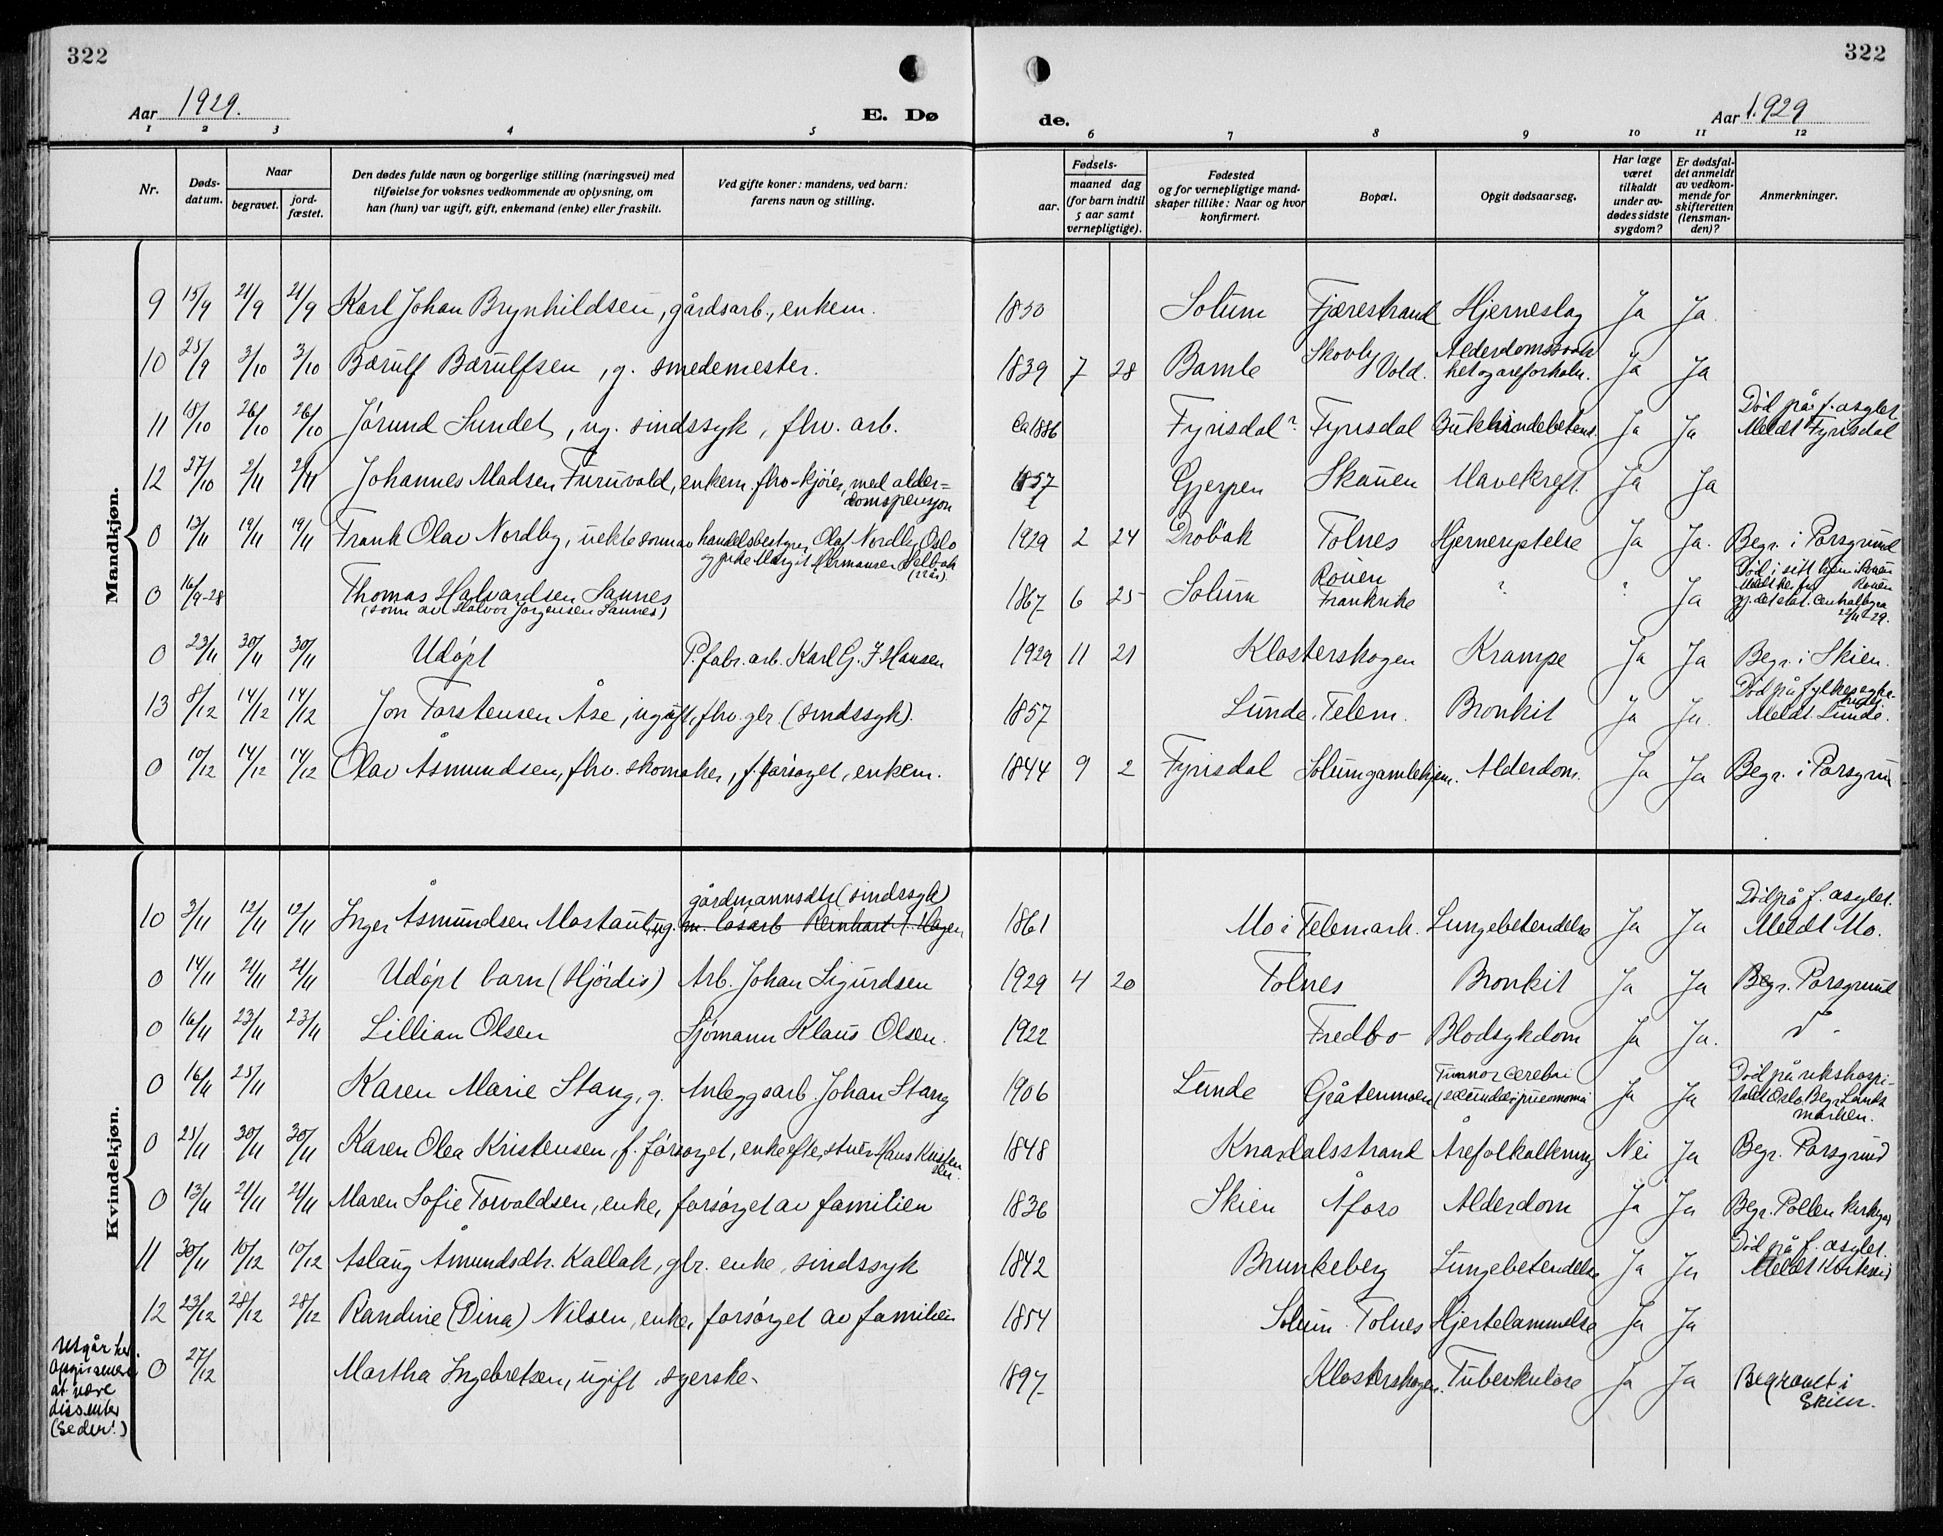 322
322
Aar 1929.
E. Dø
de.
Aar 1929
1 2 3 4 5 6 7 8 9 10 11 12
Nr.
Døds-
datum.
Naar
begravet.
jord-
fæstet.
Den dødes fulde navn og borgerlige stilling (næringsvei) med
tilføielse for voksnes vedkommende av oplysning, om
han (hun) var ugift, gift, enkemand (enke) eller fraskilt.
Ved gifte koner: mandens, ved barn:
farens navn og stilling.
Fødsels-
aar.
maaned dag
(for barn indtil
5 aar samt
vernepligtige).
Fødested
og for vernepligtige mand-
skaper tillike: Naar og hvor
konfirmert.
Bopæl.
Opgit dødsaarsag.
Har læge
været
tilkaldt
under av-
dødes sidste
sygdom?
Er dødsfal-
det anmeldt
av vedkom-
mende for
skifteretten
(lensman-
den)?
Anmerkninger.
Mandkjøn.
9 15/9 21/9 21/9 Karl Johan Brynhildsen, gårdsarb., enkem. 1850 Solum Fjærestrand Hjerneslag Ja Ja.
10 25/9 3/10 3/10 Bærulf Bærulfsen, g. smedemester. 1839 7 28 Bamle Skovly Vold. Alderdomssvak
het og areforkalkn. Ja Ja
11 18/10 26/10 26/10 Jørund Sundet, ug. sindssyk, fhv. arb. Ca 1886 Fyrisdal? Fyrisdal Bukhindebetent Ja Ja Død på f. asylet
Meldt Fyrisdal
12 27/10 2/11 2/11 Johannes Madsen Furuvald, enkem. fhv. kjører, med alder=
domspensjon 1857 Gjerpen Skauen Mavekreft. Ja Ja
0 13/11 19/11 19/11 Frank Olav Nordby, uekte sønn av handelsbestyrer Olaf Nordby Oslo
og pike Margit Hermansen Selbak
(22 år) 1929 2 24 Drøbak Tolnes Hjernerystelse Ja Ja. Begr. i Porsgrund
0 16/9-28 Thomas Halvardsen Sannes
(sønn av Halvor Jørgensen Sannes) 1867 6 25 Solum Rouen
Frankrike ? ? Ja Død i sitt hjem i Rouen
Rouen
gj. det stat. Centralbyrå
22/11 29.
0 23/11 30/11 30/11 Udøpt P. fabr. arb. Karl G. F. Hansen 1929 11 21 Klosterskogen Krampe Ja Ja Begr. i Skien.
13 8/12 14/12 14/12 Jon Torstensen Åse, ugift, fhv. gbr (sindssyk). 1857 Lunde, Telem. Bronkit Ja Ja. Død på fylkessyke-
Meldt Lunde.
0 10/12 14/12 14/12 Olav Åsmundsen, fhv. skomaker, f. forsørget, enkem. 1844 9 2 Fyrisdal Solumgamlehjem. Alderdom. Ja Ja Begr. i Porsgrun
Kvindekjøn.
10 3/11 12/11 12/11 Inger Åsmundsen Mostaul, ug. gårdmannsdtr (sindssyk)
m. løsarb Reinhart A. Hagen 1861 Mo i Telemark. Lungebetendelse Ja Ja Død på f. asylet.
Meldt Mo.
0 14/11 21/11 21/11 Udøpt barn (Hjørdis) Arb. Johan Sigurdsen 1929 4 20 Tolnes Bronkit Ja Ja Begr. Porsgrund
0 16/11 23/11 23/11 Lillian Olsen Sjømann Klaus Olsen. 1922 Fredbo Blodsykdom Ja Ja.
0 16/11 25/11 Karen Marie Stang, g. Anleggsarb. Johan Stang 1906 Lunde Gråtenmoen Tumor cerebri
(secundær pneomoni Ja Ja Død på rikshospi-
talet Oslo Begr. Lands
marken.
0 25/11 30/11 30/11 Karen Olea Kristensen, f. forsørget, enke efter stuer Hans Kristen
sen. 1848 Knardalsstrand Årefolkalkning Nei Ja Begr. Porsgrund
0 13/11 21/11 21/11 Maren Sofie Torvaldsen, enke, forsørget av familien 1836 Skien Åfoss Alderdom Ja Ja Begr. Pollen kirkegd
11 30/11 10/12 10/12 Aslaug Åmundsdtr. Kallak, gbr. enke, sindssyk 1842 Brunkeberg Lungebetendelse Ja Ja Død på f. asylet.
Meldt Kviteseid
12 23/12 28/12 28/12 Randine (Dina) Nilsen, enke, forsørget av familien 1854 Solum Tolnes Hjertelammelse Ja Ja
Utgår her.
at være
dissenter
(Seder!)
0 27/12 Martha Ingebretsen, ugift syerske 1897 Klosterskogen. Tuberkulose Ja Ja Begravet i
Skien.